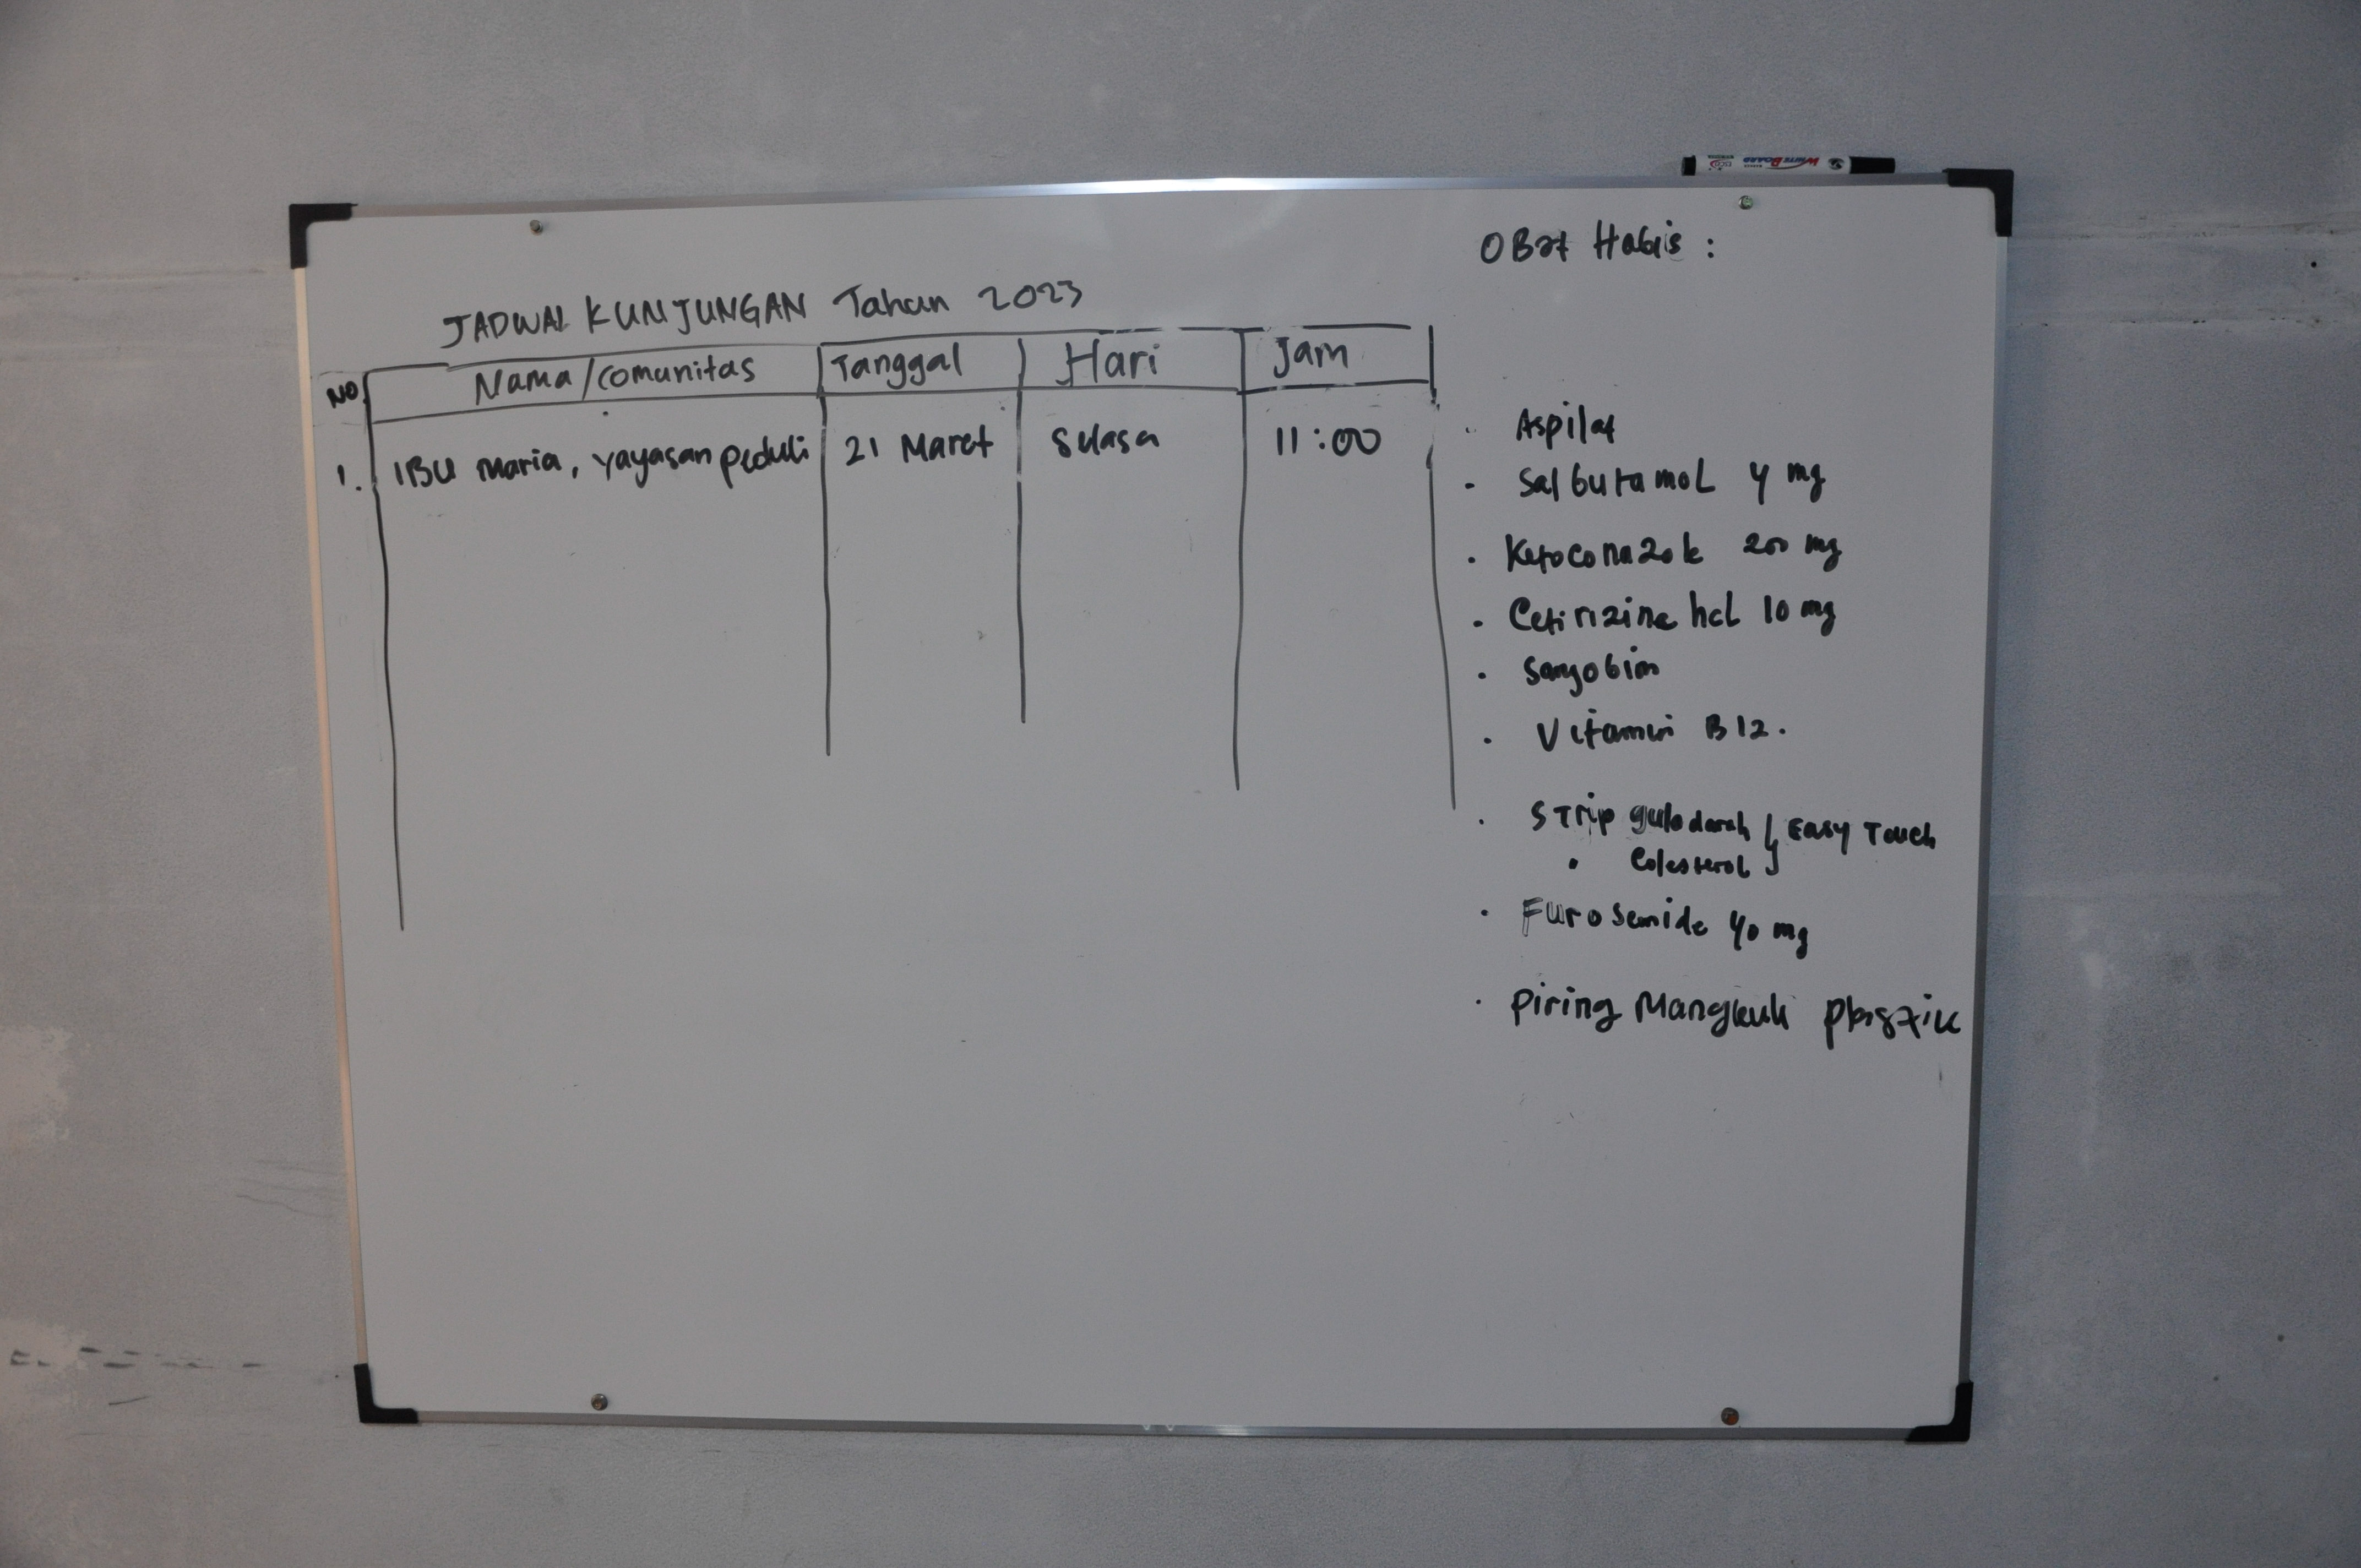 WHITEBOARD
JADWAL KUNJUNGAN Tahun 2023
NO Nama/comunitas Tanggal Hari Jam
1. IBU Maria, yayasan peduli 21 Maret Selasa 11:00
OBat Habis :
· Aspilat
· Salbutamol 4 mg
· Ketoconazole 200 mg
· Cetirizine hcl 10 mg
· Sangobion
· Vitamin B12.
· STrip gula darah } Easy Touch
· Colesterol
· Furosemide 40 mg
· Piring Mangkuk plastik